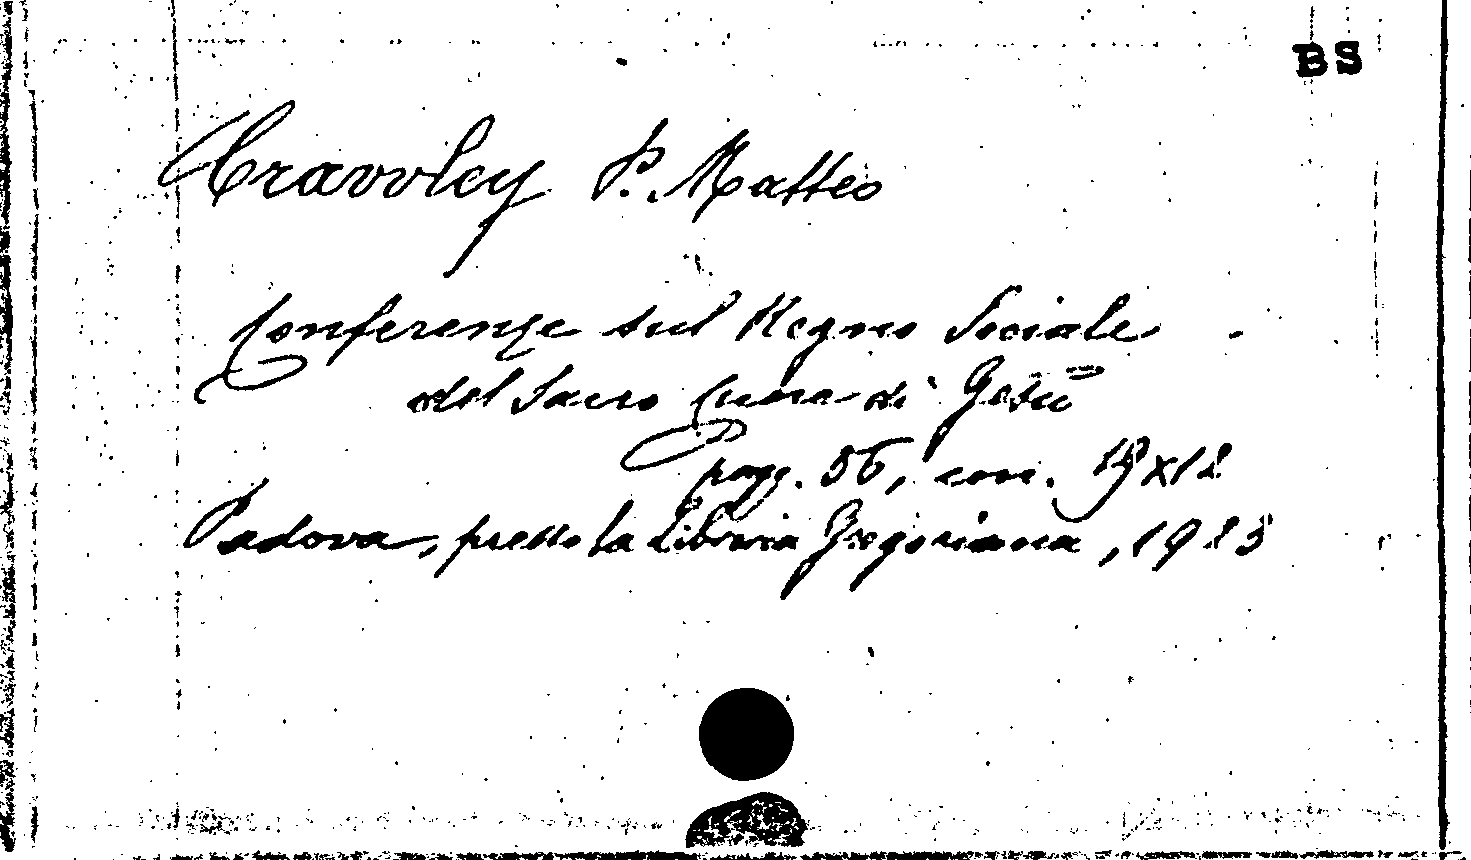 BS
Cravvley P. Matteo
Conferenze sul Regno Sociale
del Sacro Cuore di Gesù
pagg. 56, cm. 19x12
Padova, presso la Libreria Gregoriana, 1923